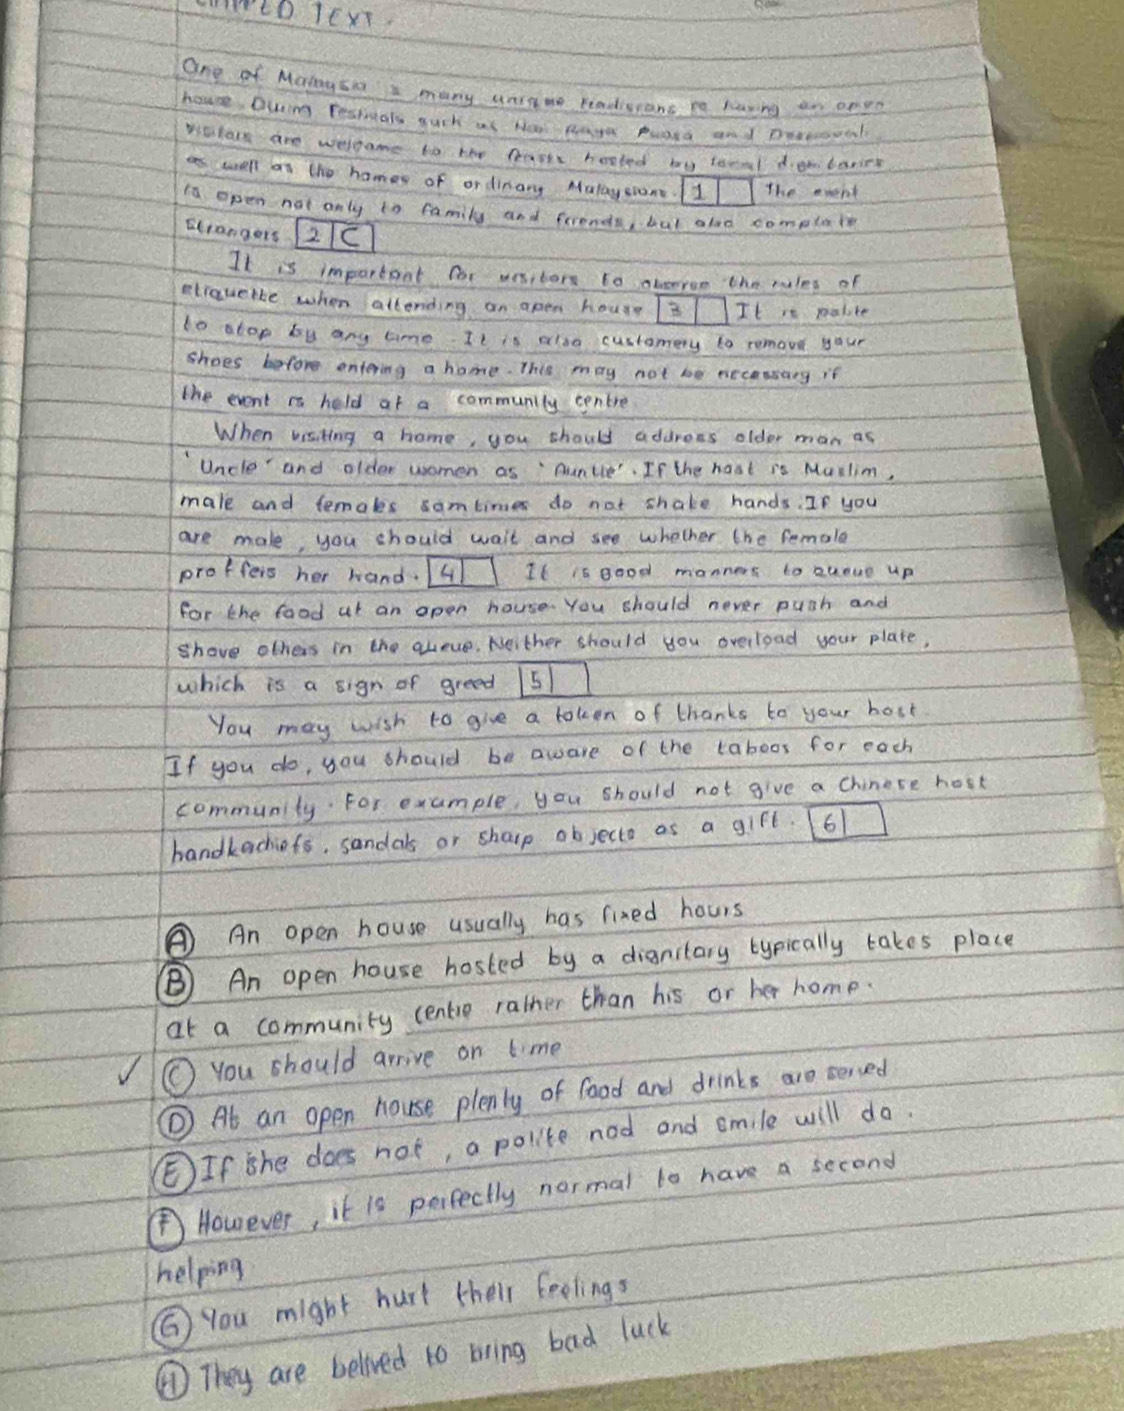 TEXT.
One of Malaysia's many unique tradisions is having an open
house. During Festivals such as Hari Raya Puasa and Deepavali
visitors are welcome to the feasts hosted by local dignitaries
as well as the homes of ordinary Malaysians. 1 The event
is open not only to family and friends, but also complete
strangers 2 C
It is important for visitors to observe the rules of
etiquette when attending an open house 3 It is polite
to stop by any time. It is also customery to remove your
shoes before entering a home. This may not be necessary if
the event is held at a community centre
When visiting a home, you should address older man as
'Uncle' and older women as 'Auntie'. If the host is Muslim,
male and females somtimes do not shake hands. If you
are male, you should wait and see whether the female
proffers her hand. 4 It is good manners to queue up
for the food at an open house. You should never push and
shove others in the queue. Neither should you overload your plate,
which is a sign of greed 5
You may wish to give a token of thanks to your host.
If you do, you should be aware of the taboos for each
community. For example, you should not give a Chinese host
handkachiefs, sandals or sharp objects as a gift. 6
A An open house usually has fixed hours
B An open house hosted by a dignitary typically takes place
at a community centre rather than his or her home.
✓ C You should arrive on time
D At an open house plenty of food and drinks are served
E If she does not, a polite nod and smile will do.
F However, it is perfectly normal to have a second
helping
G You might hurt their feelings
H They are belived to bring bad luck